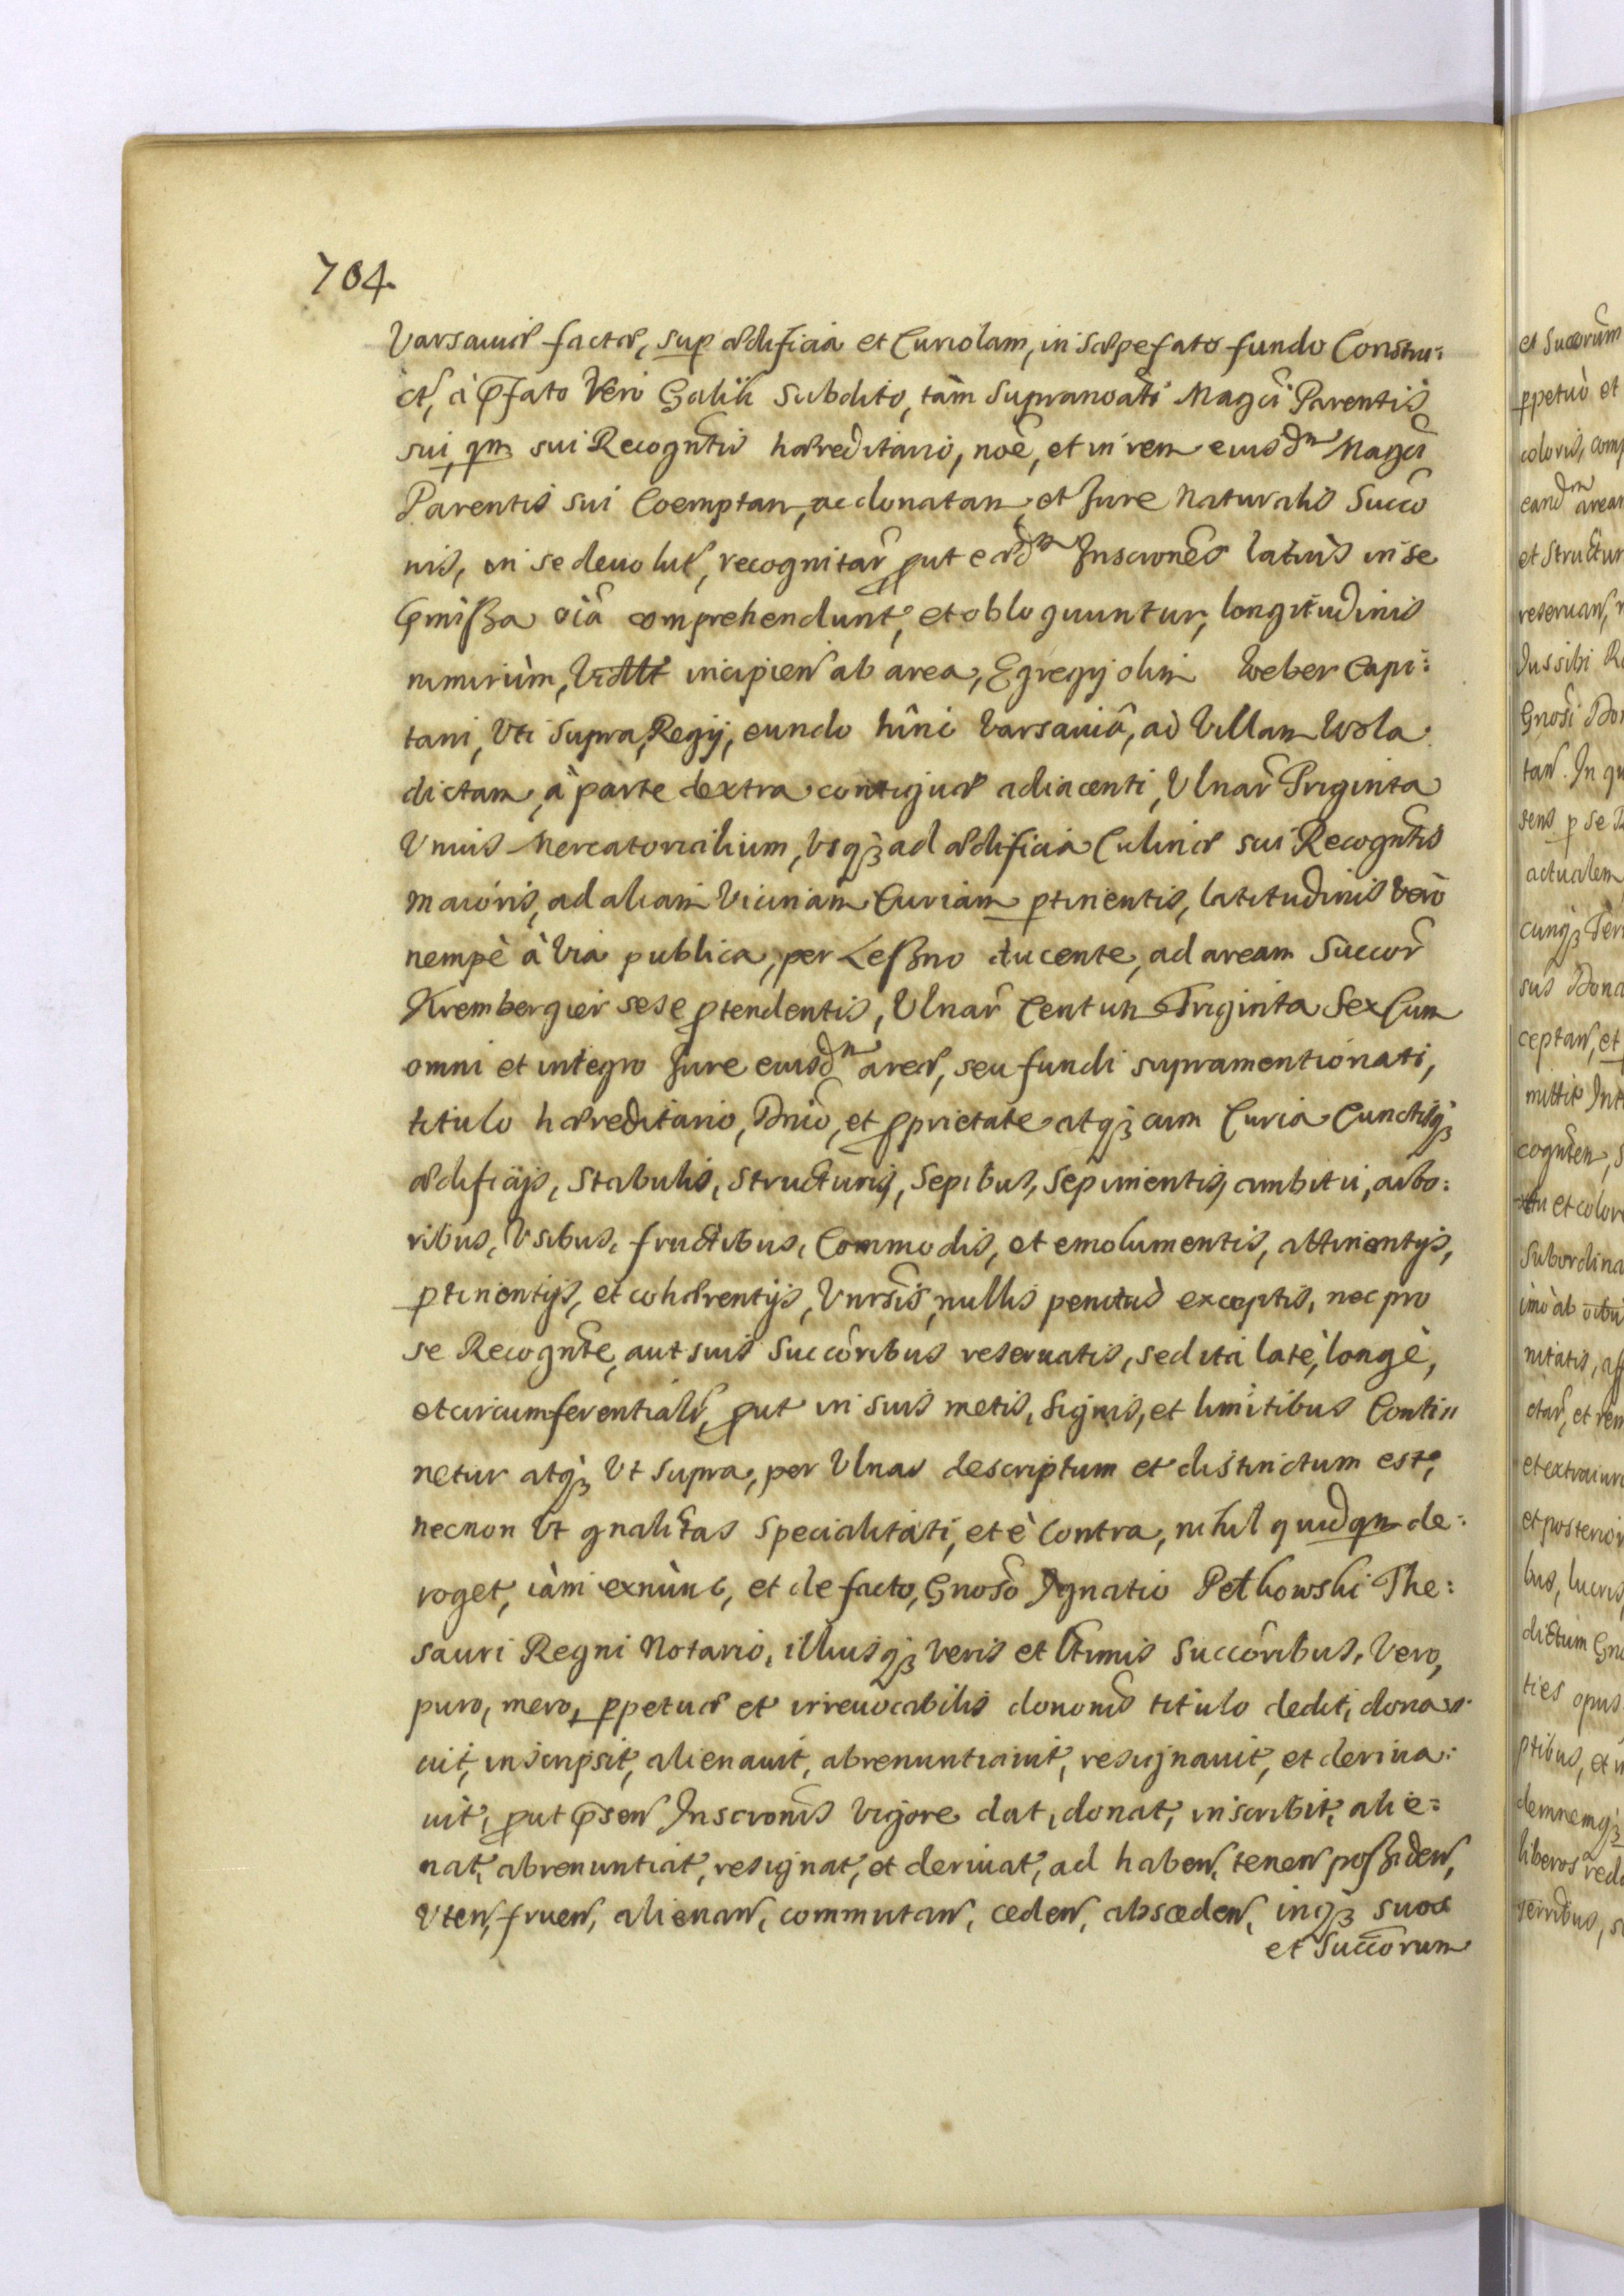 704.
Varsaviæ factæ, sup ædificia et Curiolam, in sæpefato fundo Constru:
ct, à p̄fato Vero Galik Subdito, tàm Supranoāti Magci Parentis
sui, qm sui Recogntis hæreditario, noē, et in rem eiusdm Magci
Parentis sui Coemptam, ac donatam, et Jure Naturalis Succō
nis, in se devolut, recognitar̃ put eædm Inscriones latius in se
p̄mißa oīa comprehendunt, et obloquuntur, longitudinis
nimirùm, incipien ab area, Egregij olim Weber Capi:
tani, Uti Supra, Regij, eundo hinc Varsaviâ, ad Villam Wola
dictam, à parte dextra contiguæ adiacenti, Ulnar̃ Triginta
Unius Mercatorialium, usq3 ad ædificia Culinæ sui Recogntis
maioris, ad aliam Vicinam Curiam ptinentis, latitudinis Verò
nempè à via publica, per Leßno ducente, ad aream Succor̃
Krembergier sese ptendentis, Ulnar̃ Centum Triginta Sex Cum
omni et integro Jure eiusdm areæ, seu fundi supramentionati,
titulo hæreditario, Dnio, et pprietate atq3 cum Curia Cunctisq3
ædificijs, Stabulis, structuris, Sepibus, Sepimentis, ambitu, arbo:
ribus, Usibus, fructibus, Commodis, et emolumentis, attinentijs,
ptinentijs, et cohærentijs, Unrsis, nullis penitus exceptis, nec pro
se Recognte, aut suis Succōribus reservatis, sed ita latè, longè,
et circumferentialr, put in suis metis, signis, et limitibus Conti„
netur atq3 Ut supra, per Ulnas descriptum et distinctum est,
necnon Ut gnalitas Specialitati, et è contra, nihil quidqm de:
roget, iàm exnùnc, et de facto, Gnoso Ignatio Petkowski The:
sauri Regni Notario, illiusq3 veris et ltimis Succōribus, Vero,
puro, mero, ppetuæ et irrevocabilis dononis titulo dedit, dona„
vit, inscripsit, alienavit, abrenuntiavit, resignavit, et deriva:
vit, put p̄sen Inscronis vigore dat, donat, inscribit, alie:
nat, abrenuntiat, resignat, et derivat, ad haben, tenen poßiden,
Uten, fruen, alienan, commutan, ceden, absceden, inq3 suos
et Succōrum
et Succorum
ppetuò et
coloris, comp
eandm aream
et Structur
reservan,
Jussibi
Gnosi
tan. In qu
sens p se
actualem
cunq3
sus Dona
ceptan, et
mittit Int
cognten,
et colore
Subordina
imò ab
nitatis, aff
ctar, et rem
et extraiur
et posterior
bus, lucris,
dictum
ties opus
ptibus, et
demnemq3
liberos